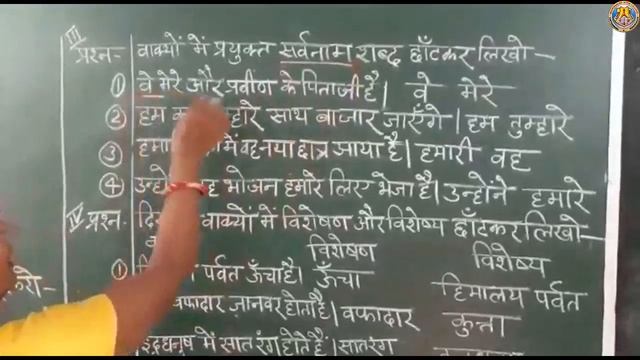 III
प्रश्न- वाक्यों में प्रयुक्त सर्वनाम शब्द छाँटकर लिखो-
① वे मेरे और प्रवीण के पिताजी है। वे मेरे
② हम साथ बाजार जाएँगे। हम तुम्हारे
③ में वह नया छात्र आया है। हमारी वह
④ भोजन हमारे लिए भेजा है। उन्होंने हमारे
IV प्रश्न- वाक्यों में विशेषण और विशेष्य छाँटकर लिखो-
विशेषण विशेष्य
① पर्वत ऊँचा है। ऊँचा हिमालय पर्वत
वफादार जानवर होता है। वफादार कुत्ता
इंद्रधनुष में सात रंग होते हैं। सात रंग